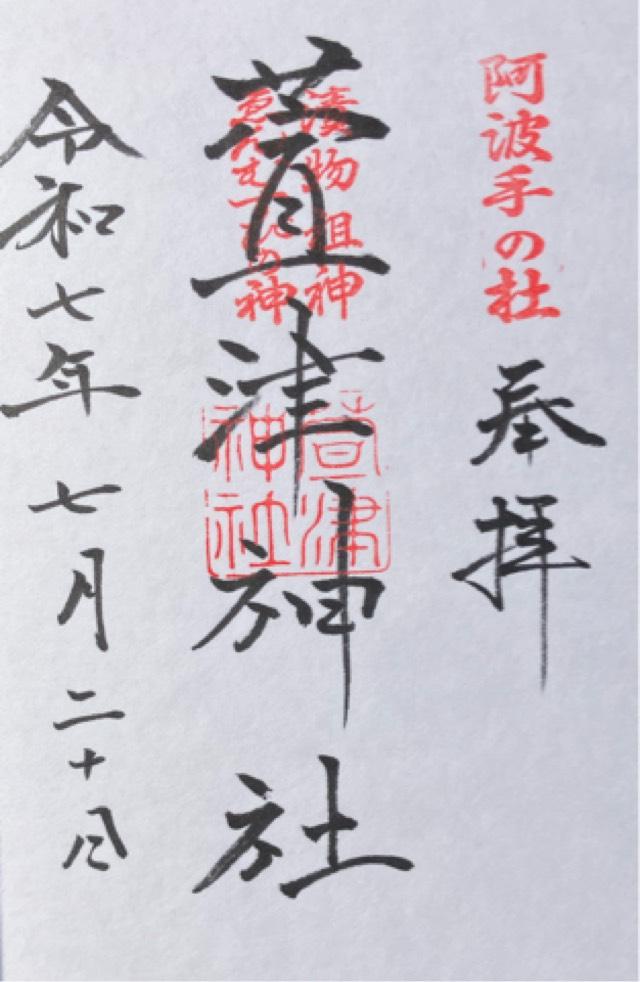 阿波手の杜
奉拝
漬物祖神
ゑんむすびの神
萱津神社
萱津
神社
令和七年七月二十日